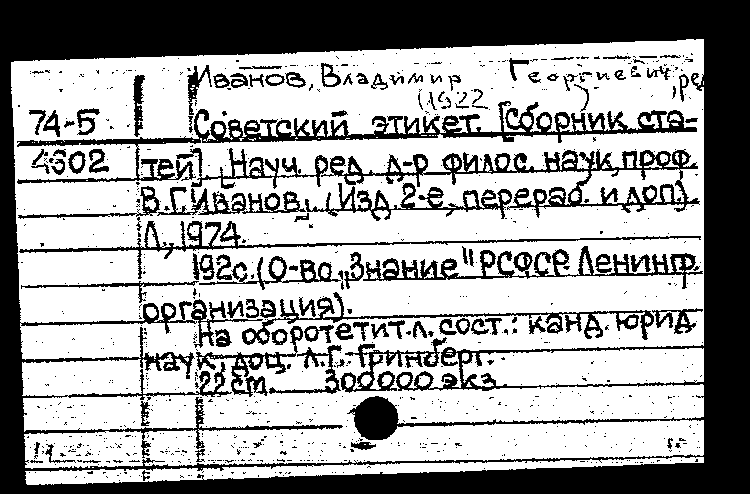 Иванов, Владимир Георгиевич, ред
(1922 )
74-5 Советский этикет. [Сборник ста-
4602 тей]. [Науч. ред. д-р филос. наук, проф.
В.Г.Иванов]. (Изд. 2-е, перераб. и доп.).
Л., 1974.
192с. (О-во „Знание" РСФСР. Ленингр.
организация).
На обороте тит.л. сост.: канд. юрид.
наук, доц. Л.Г. Гринберг.
22 см. 300000 экз.